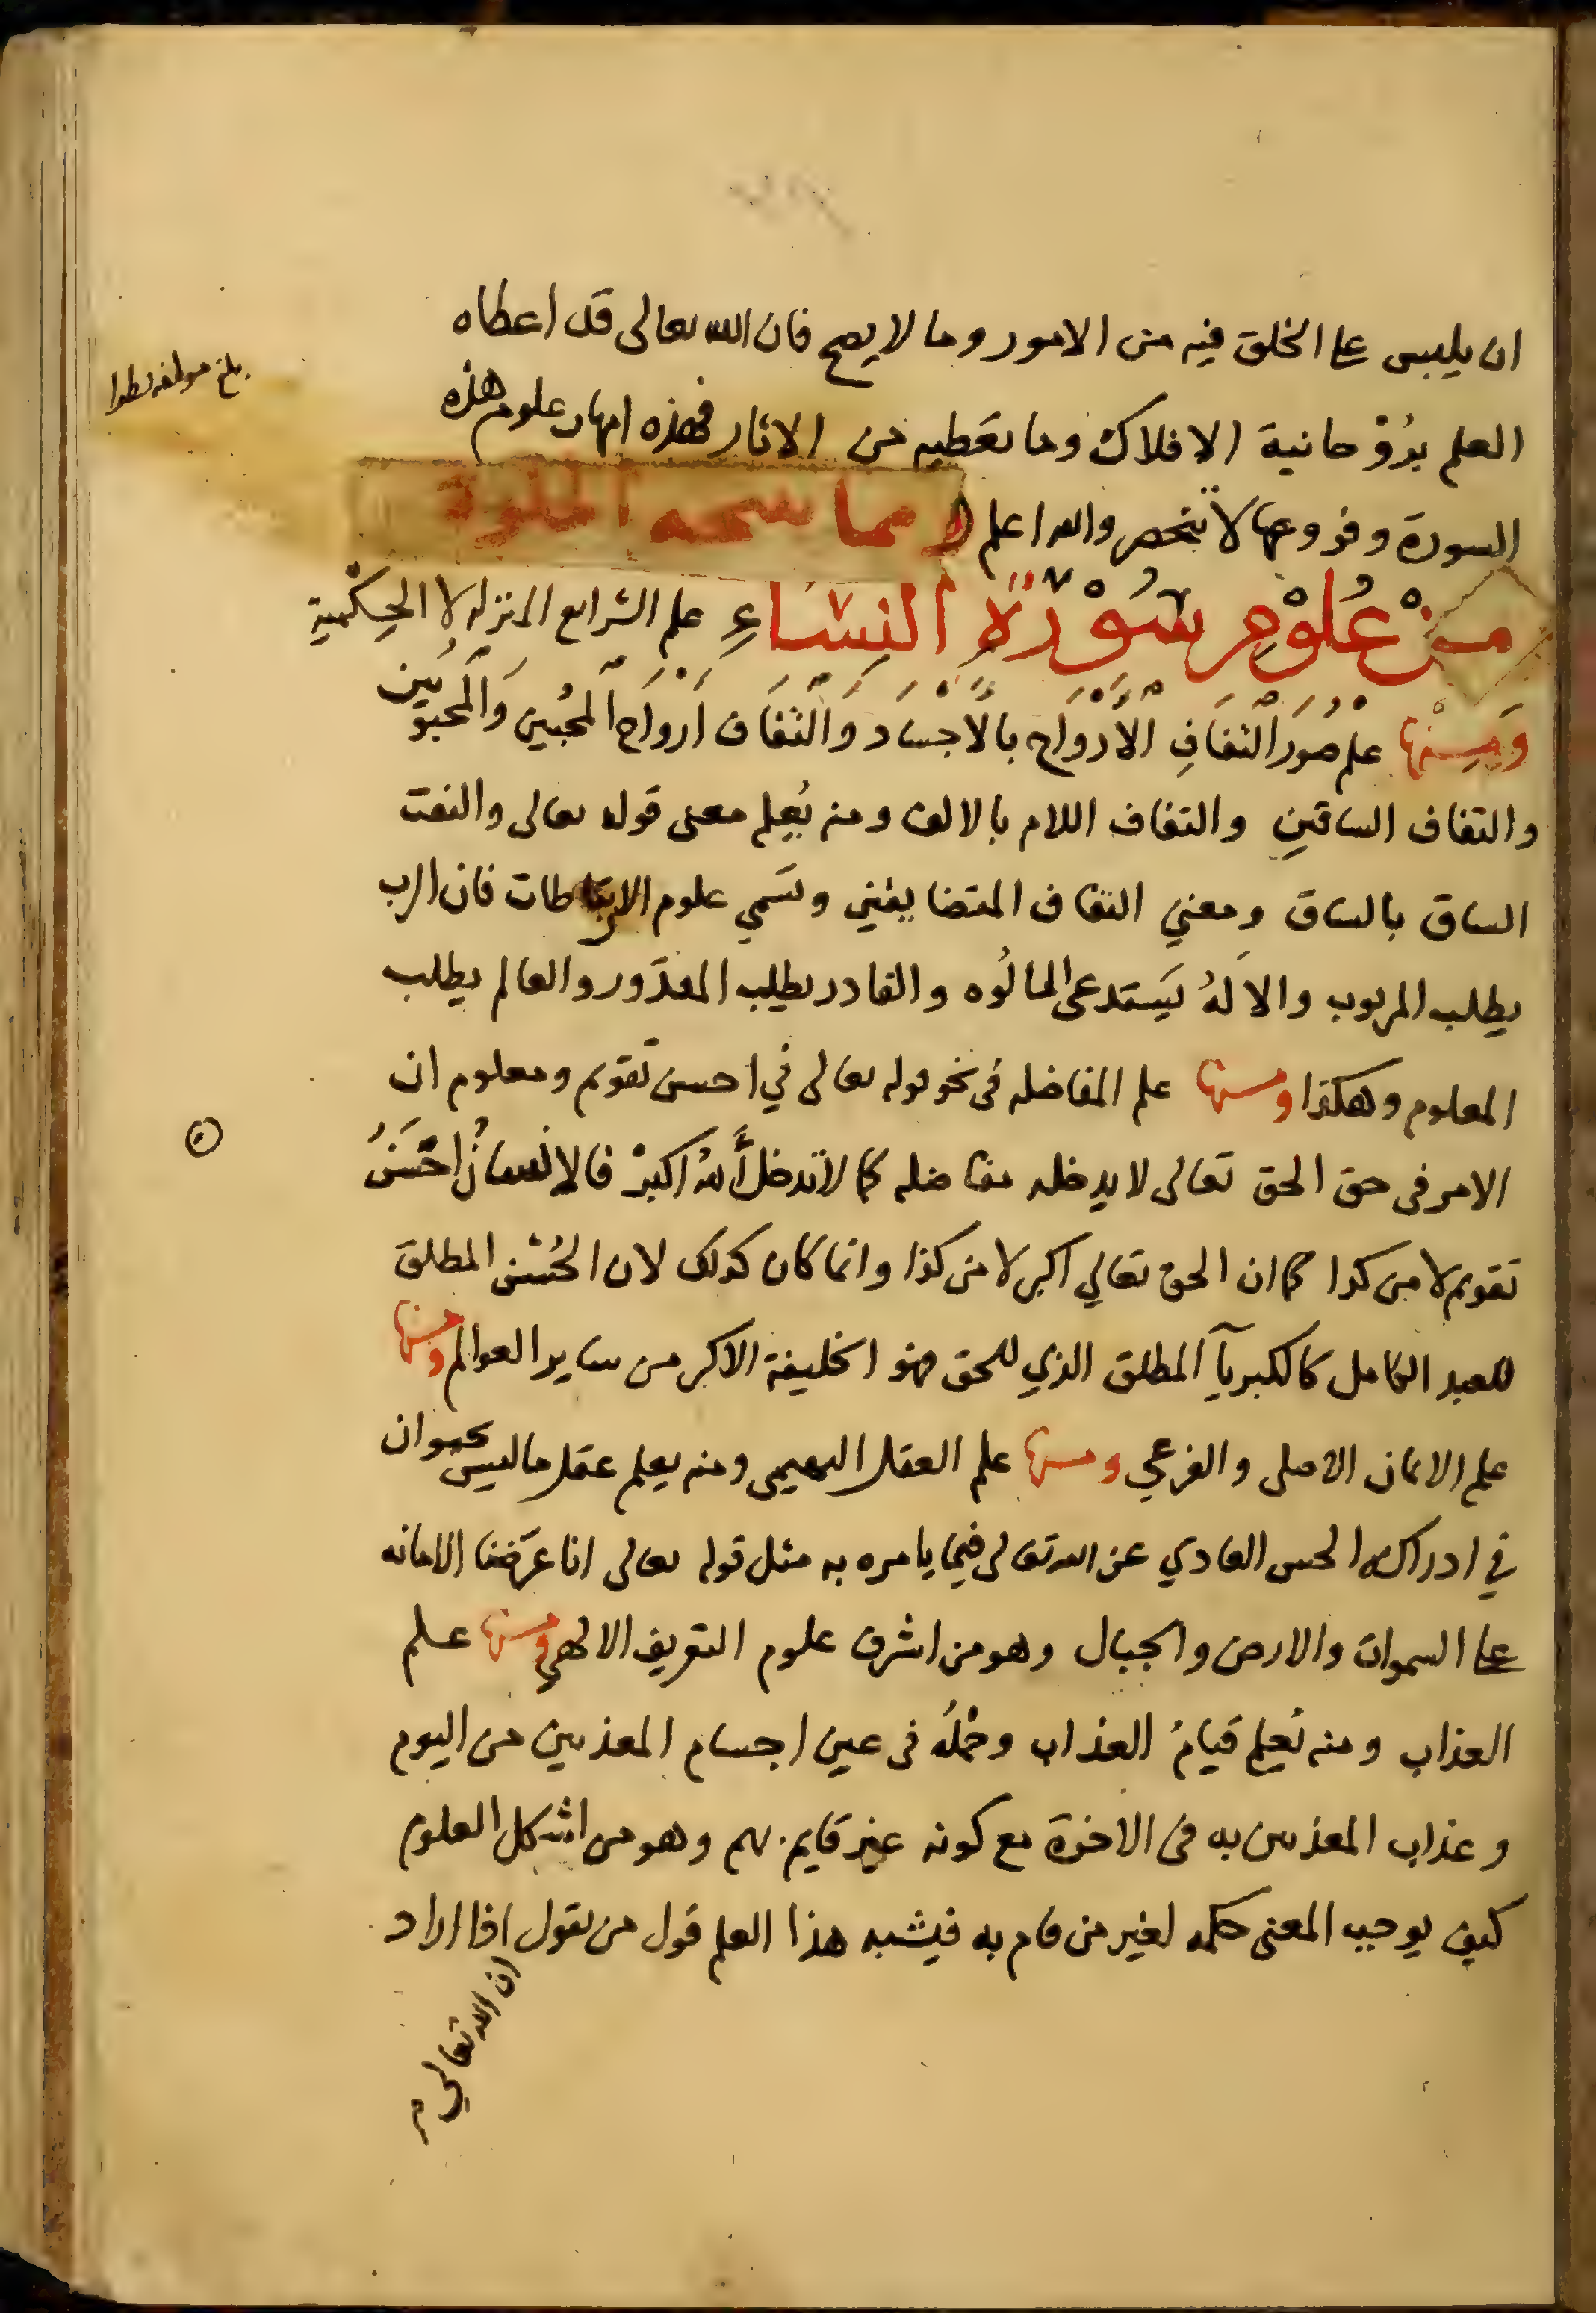 ان يلبس على الخلق فيه من الامور وما لا يصح فان الله تعالى قد اعطاه
بلغ مولفه
العلم بروحانية الافلاك وما تعطيه من الاثار فهذه امهات علوم هذه
السورة وفروعها لا تنحصر والله اعلم
مِنْ عُلوْمِ سُوْرَةِ النِسَاءِ علم الشرايع المنزله لا الحِكْمية
وَمِنْها علم صُوَر التفافِ الْأَرْوَاح بالْأَجْسَاد وَالتفَاف أرْوَاح المحُبين وَالمحبوبَين
والتفاف الساقين والتفاف اللام بالالف ومنه يُعلم معنى قوله تعالى والتفت
الساق بالساق ومعني التفاف المتضايفين وتسَمي علوم الارتباطات فان الرب
يطلب المربوب والالهُ يَستدعى المالُوه والقادر يطلب المقدَور والعالم يطلب
المعلوم وهكذا ومنها علم المفاضله فى نحو قوله تعالى في احسن تقويم ومعلوم ان
الامر فى حق الحق تعالى لا يدخله مفاضله كما لا تدخل أَللهُ اكبرْ فالإنسانُ احْسَنُ
تقويم لا من كذا كما ان الحق تعالي اكبر لا من كذا وانما كان كذلك لان الحُسْن المطلق
للعبد الكامل كالكبريآ المطلق الذي للحق فهو الخليفة الاكبر من ساير العوالم ومنها
علم الايمان الاصلى والفرعي ومنها علم العقل البهيمى ومنه يعلم عقل ما ليس بحيوان
في ادراكه الحس العادي عن الله تعالى فيما يامره به مثل قوله تعالى انا عَرَضنا الامانه
على السموات والارض والجبال وهو من اشرف علوم التعريف الالهي ومنها علم
العذاب ومنه نُعلم قيامُ العذاب وحمْلُه فى عين اجسام المعذبين من اليوم
وعذاب المعذبين به فى الاخرة مع كونه غير قايم بهم وهو من اشكل العلوم
كيف يوجب المعنى حكمه لغير من قام به فيشبه هذا العلم قول من يقول اذا اراد
ان الله تعالي